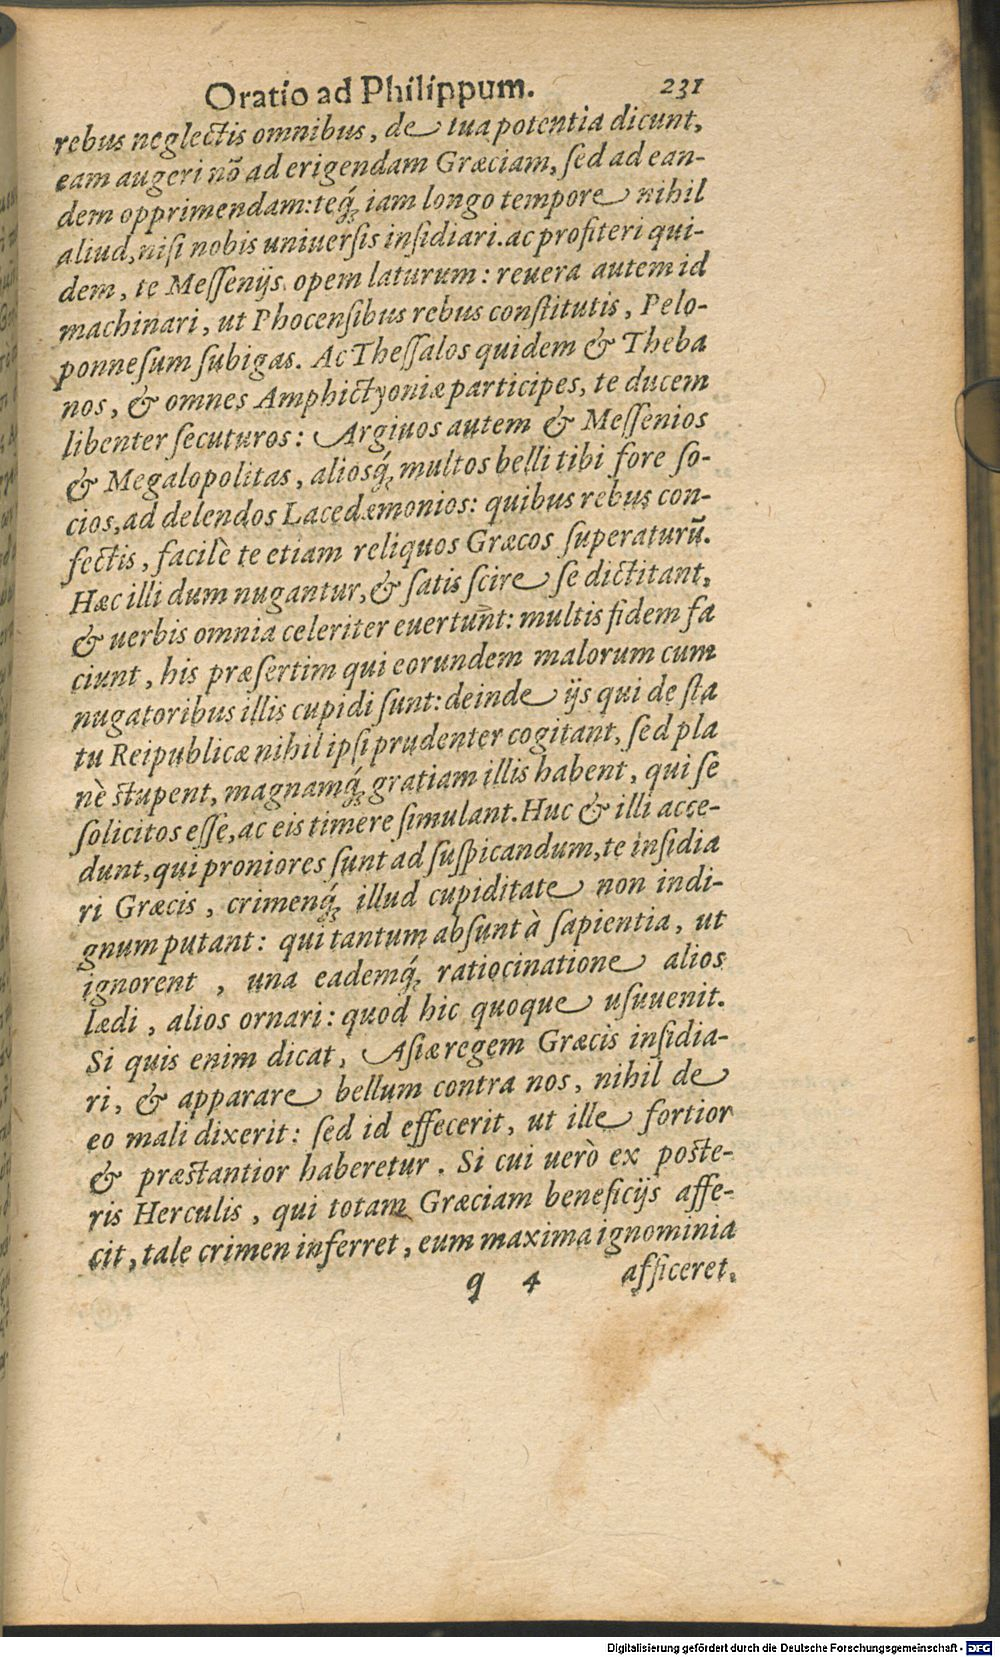 Oratio ad Philippum. 231
rebus neglectis omnibus, de tua potentia dicunt,
eam augeri nõ ad erigendam Græciam, sed ad ean-
dem opprimendam: teq́ꝫ iam longo tempore nihil
aliud, nisi nobis uniuersis insidiari. ac profiteri qui-
dem, te Messenijs opem laturum: reuera autem id
machinari, ut Phocensibus rebus constitutis, Pelo-
ponnesum subigas. Ac Thessalos quidem & Theba
nos, & omnes Amphictyoniæ participes, te ducem
libenter secuturos: Argiuos autem & Messenios
& Megalopolitas, aliosq́ꝫ multos belli tibi fore so-
cios, ad delendos Lacedæmonios: quibus rebus con-
fectis, facilè te etiam reliquos Græcos superaturũ.
Hæc illi dum nugantur, & satis scire se dictitant,
& uerbis omnia celeriter euertuñt: multis fidem fa
ciunt, his præsertim qui eorundem malorum cum
nugatoribus illis cupidi sunt: deinde ijs qui de sta
tu Reipublicæ nihil ipsi prudenter cogitant, sed pla
nè stupent, magnamq́ꝫ gratiam illis habent, qui se
solicitos esse, ac eis timere simulant. Huc & illi acce-
dunt, qui proniores sunt ad suspicandum, te insidia
ri Græcis, crimenq́ꝫ illud cupiditate non indi-
gnum putant: qui tantum absunt à sapientia, ut
ignorent, una eademq́ꝫ ratiocinatione alios
lædi, alios ornari: quod hic quoque usuuenit.
Si quis enim dicat, Asiæ regem Græcis insidia-
ri, & apparare bellum contra nos, nihil de
eo mali dixerit: sed id effecerit, ut ille fortior
& præstantior haberetur. Si cui uerò ex poste-
ris Herculis, qui totam Græciam beneficijs affe-
cit, tale crimen inferret, eum maxima ignominia
q 4 afficeret.
Digitalisierung gefördert durch die Deutsche Forschungsgemeinschaft - DFG